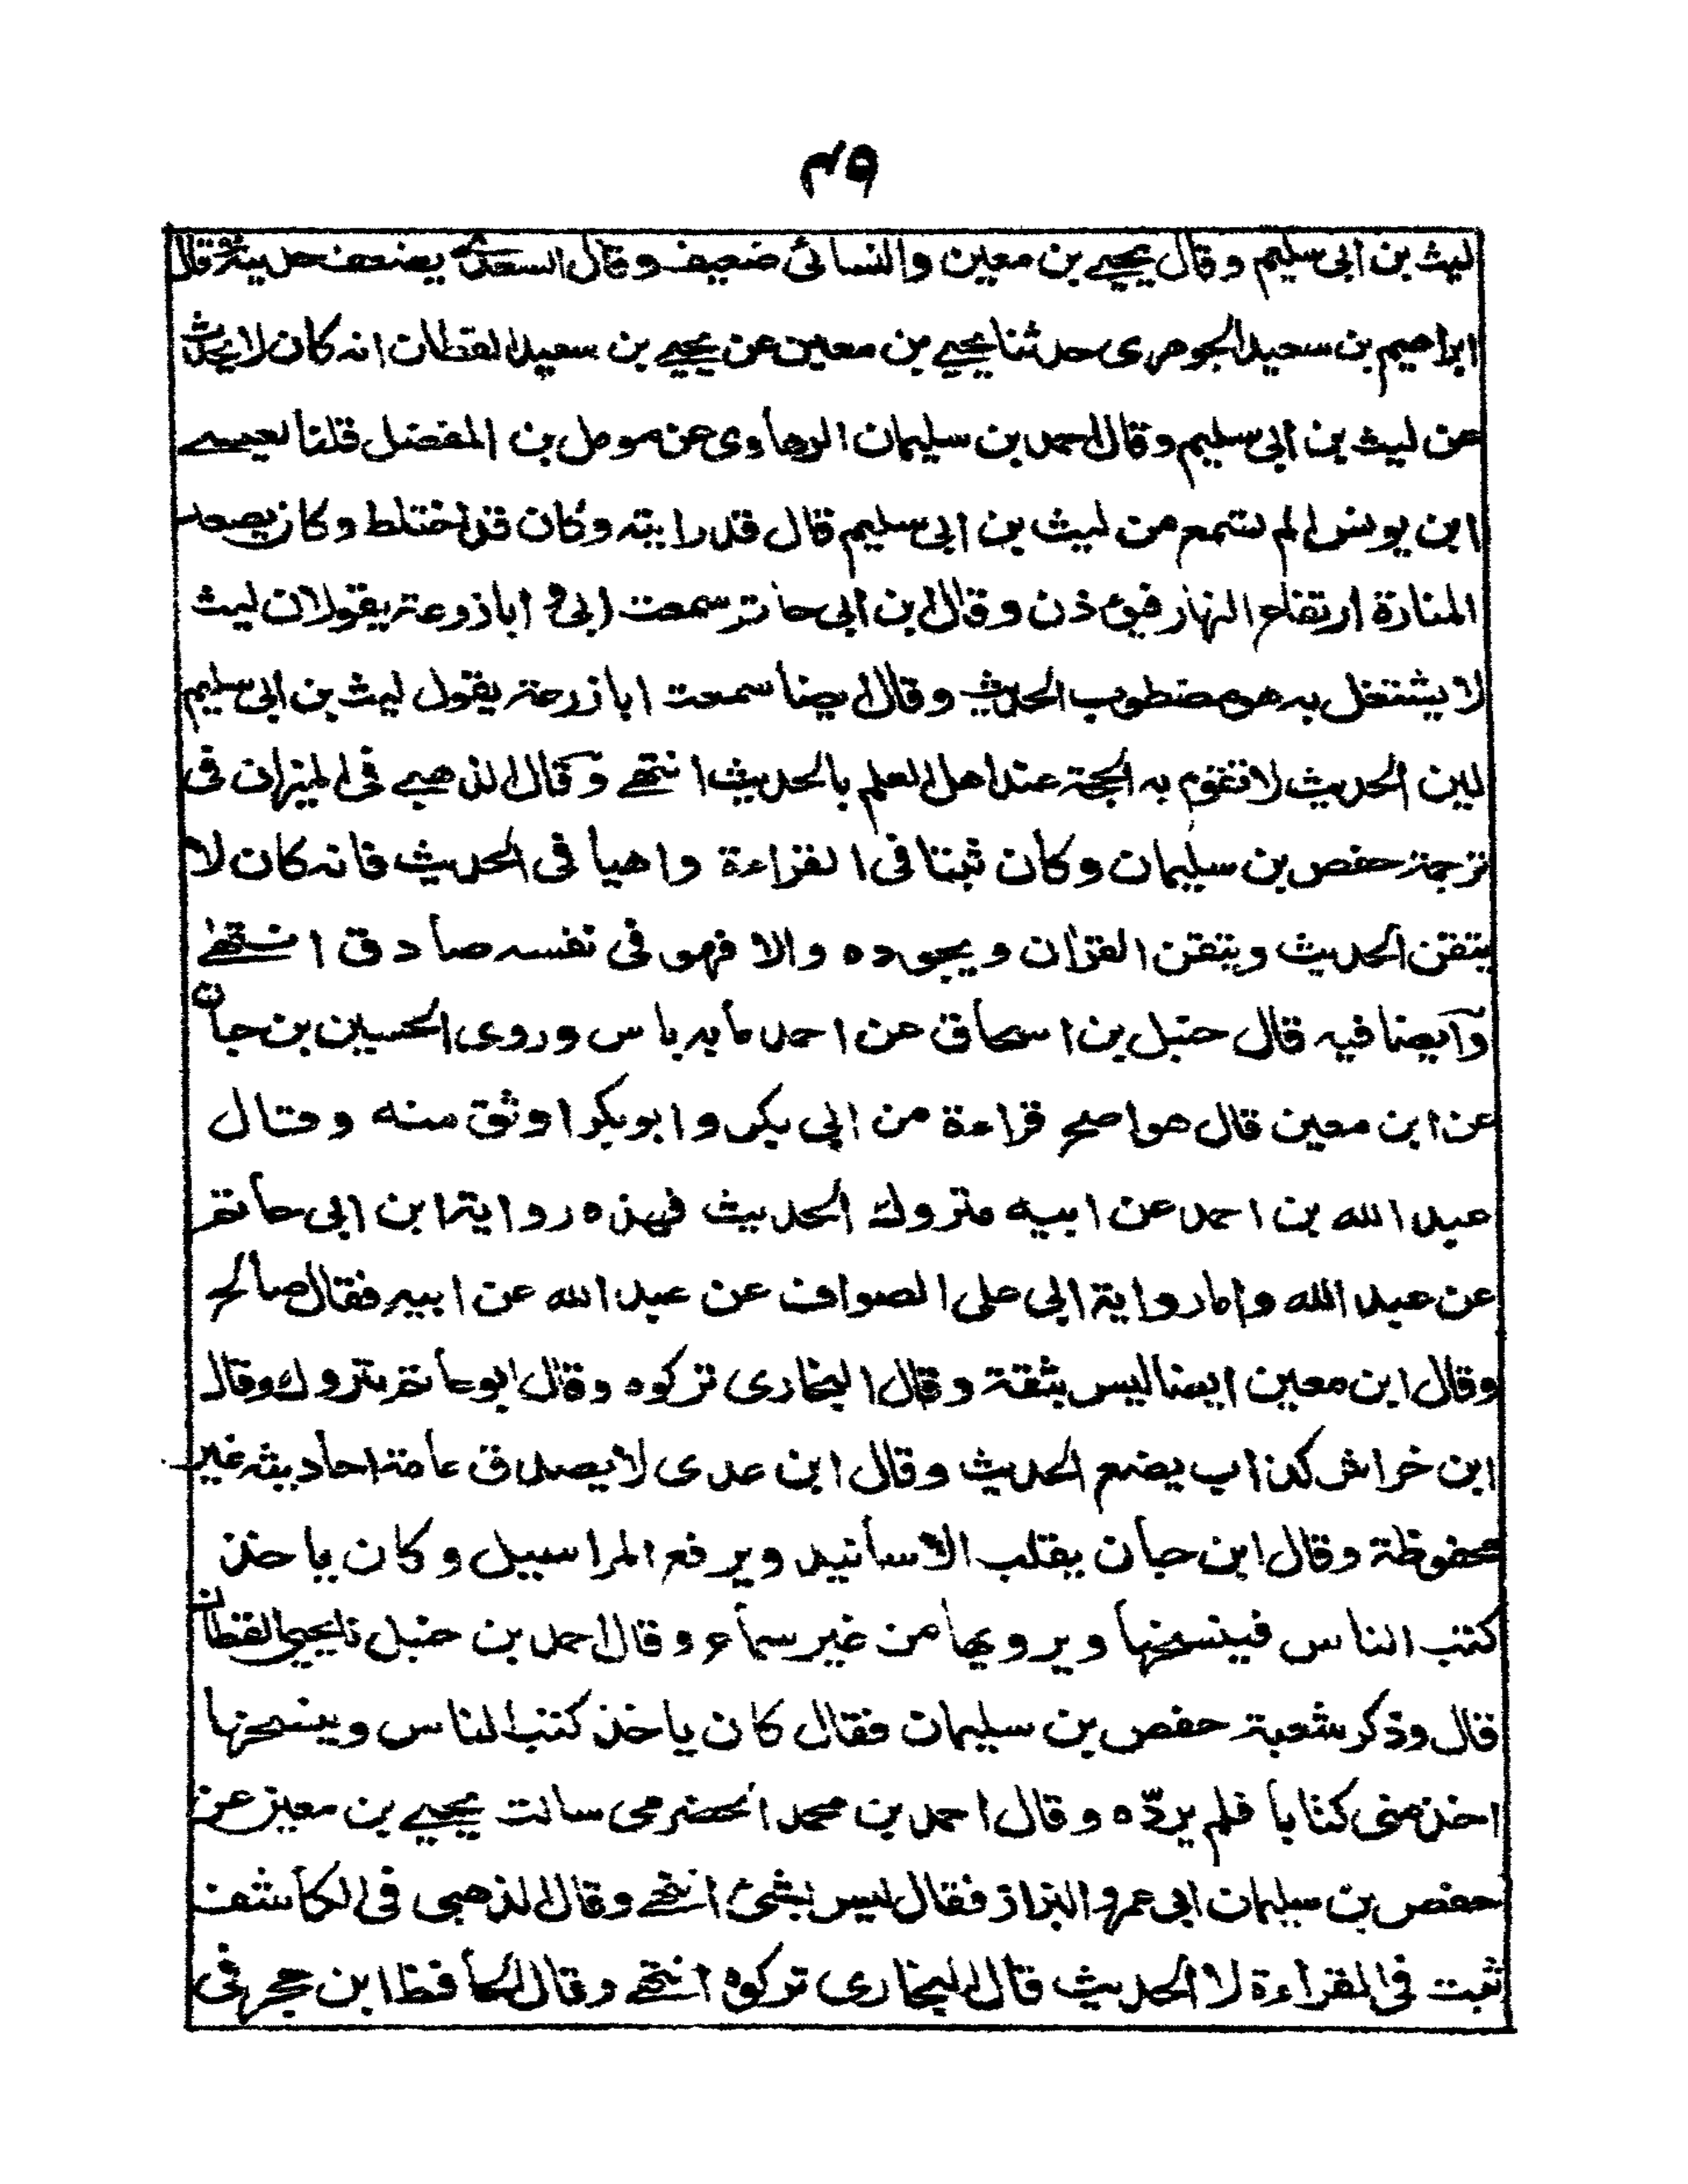 ٤٩
ليث بن ابى سليم وقال يحيى بن معين والنسائى ضعيف وقال السعدى يضعف حديثه قال
ابراهيم بن سعيد الجوهرى حدثنا يحيى بن معين عن يحيى بن سعيد القطان انه كان لا يحدث
عن ليث بن ابى سليم وقال احمد بن سليمان الرهاوى عن مومل بن المفضل قلنا لعيسى
ابن يونس الم تسمع من ليث بن ابى سليم قال قد رايته وكان قد اختلط وكان يصعد
المنارة ارتفاع النهار فيؤذن وقال ابن ابى حاتم سمعت ابى و ابا زرعة يقولان ليث
لا يشتغل به هو مضطرب الحديث وقال ايضا سمعت ابا زرعة يقول ليث بن ابى سليم
لين الحديث لا تقوم به الحجة عند اهل العلم بالحديث انتهى وقال الذهبى فى الميزان فى
ترجمة حفص بن سليمان وكان ثبتا فى القراءة واهيا فى الحديث فانه كان لا
يتقن الحديث ويتقن القران ويجوده والا فهو فى نفسه صادق انتهى
وآيضا فيه قال حنبل بن اسحاق عن احمد ما به باس وروى الحسين بن حبان
عن ابن معين قال هو اصح قراءة من ابى بكر وابو بكر اوثق منه وقال
عبد الله بن احمد عن ابيه متروك الحديث فهذه رواية ابن ابى حاتم
عن عبد الله واما رواية ابى على الصواف عن عبد الله عن ابيه فقال صالح
وقال ابن معين ايضا ليس بثقة وقال البخارى تركوه وقال ابو حاتم متروك وقال
ابن خراش كذاب يضع الحديث وقال ابن عدى لا يصدق عامة احاديثه غير
محفوظة وقال ابن حبان يقلب الاسانيد ويرفع المراسيل وكان ياخذ
كتب الناس فينسخها ويرويها من غير سماع وقال احمد بن حنبل نا يحيى القطان
قال وذكر شعبة حفص بن سليمان فقال كان ياخذ كتب الناس وينسخها
اخذ منى كتابا فلم يردّه وقال احمد بن محمد الحضرمى سالت يحيى بن معين عن
حفص بن سليمان ابى عمرو البزاز فقال ليس بشئ انتهى وقال الذهبى فى الكاشف
ثبت فى القراءة لا الحديث قال البخارى تركوه انتهى وقال الحافظ ابن حجر فى